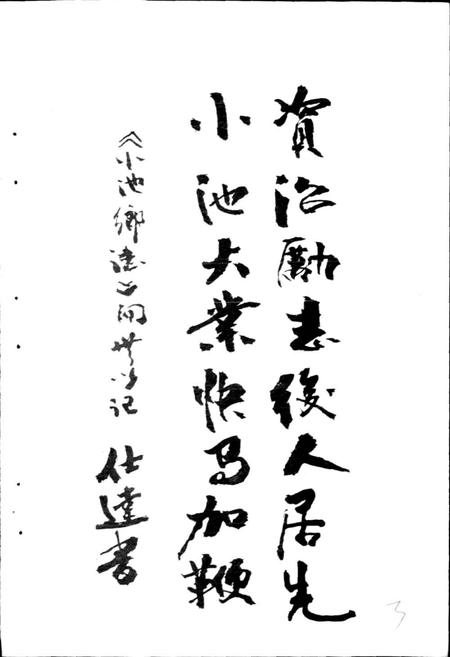 資治勵志後人居先
小池大業快马加鞭
《小池鄉誌》问世以记
仕達書
3